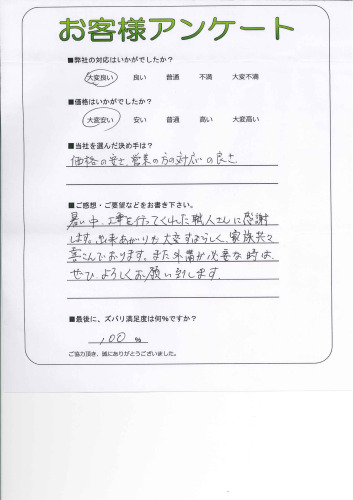 お客様アンケート
■弊社の対応はいかがでしたか?
大変良い 良い 普通 不満 大変不満
■価格はいかがでしたか?
大変安い 安い 普通 高い 大変高い
■当社を選んだ決め手は?
価格の安さ、営業の方の対応の良さ
■ご感想・ご要望などをお書き下さい。
暑い中、工事を行ってくれた職人さんに感謝
します。出来あがりも大変すばらしく、家族共々
喜こんでおります。また外構が必要な時は、
ぜひ よろしくお願い致します。
■最後に、ズバリ満足度は何%ですか?
100 %
ご協力頂き、誠にありがとうございました。